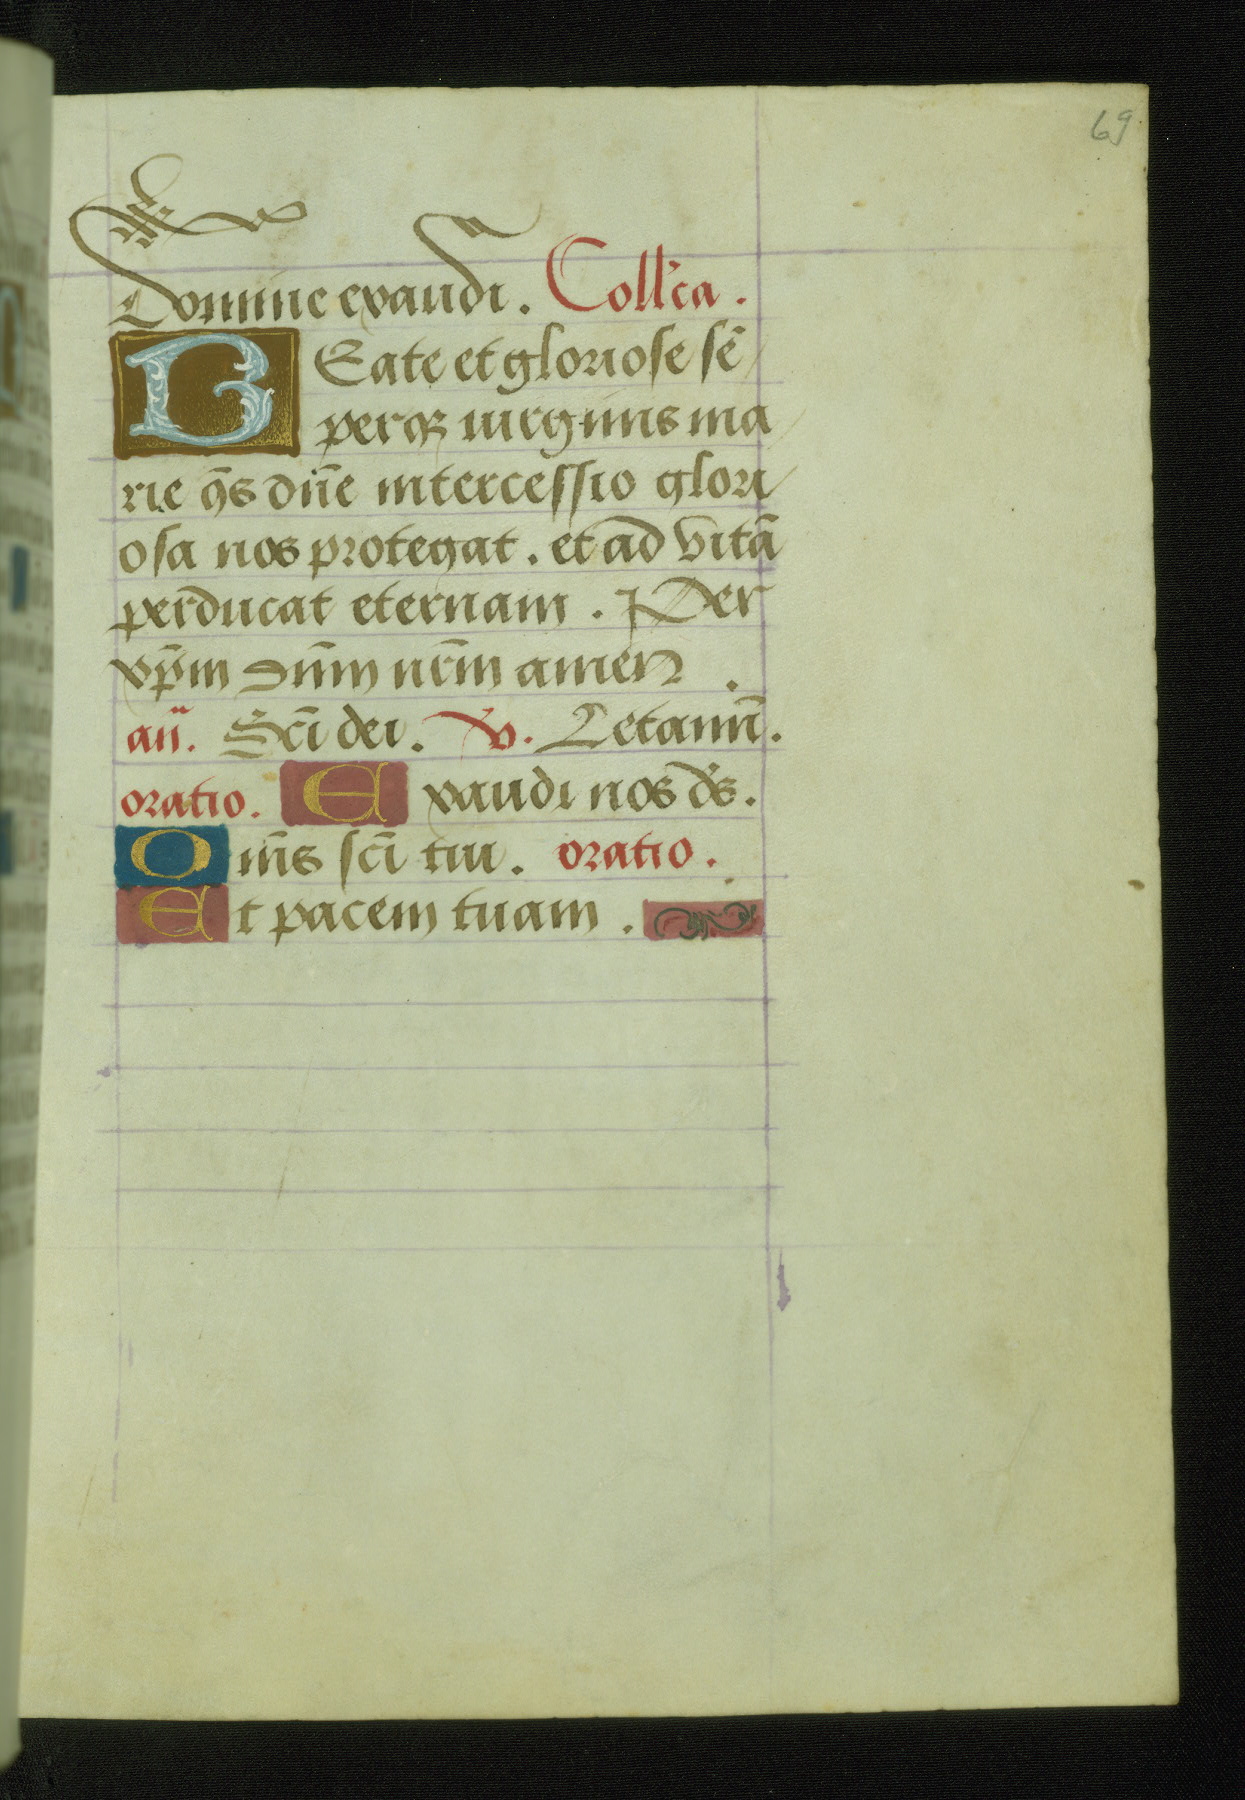 69
Domine exaudi. Coll'ca.
BEate et gloriose sē
perqꝫ uirginis ma
rie q̄s dn̄e intercessio glori
osa nos protegat. et ad vitā
perducat eternam. Per
xp̄m dn̄m nr̄m amen.
an̄. Sc̄i dei. V. Letamı̄.
oratio. Exaudi nos ds̄.
Om̄s sc̄i tui. oratio.
Et pacem tuam.